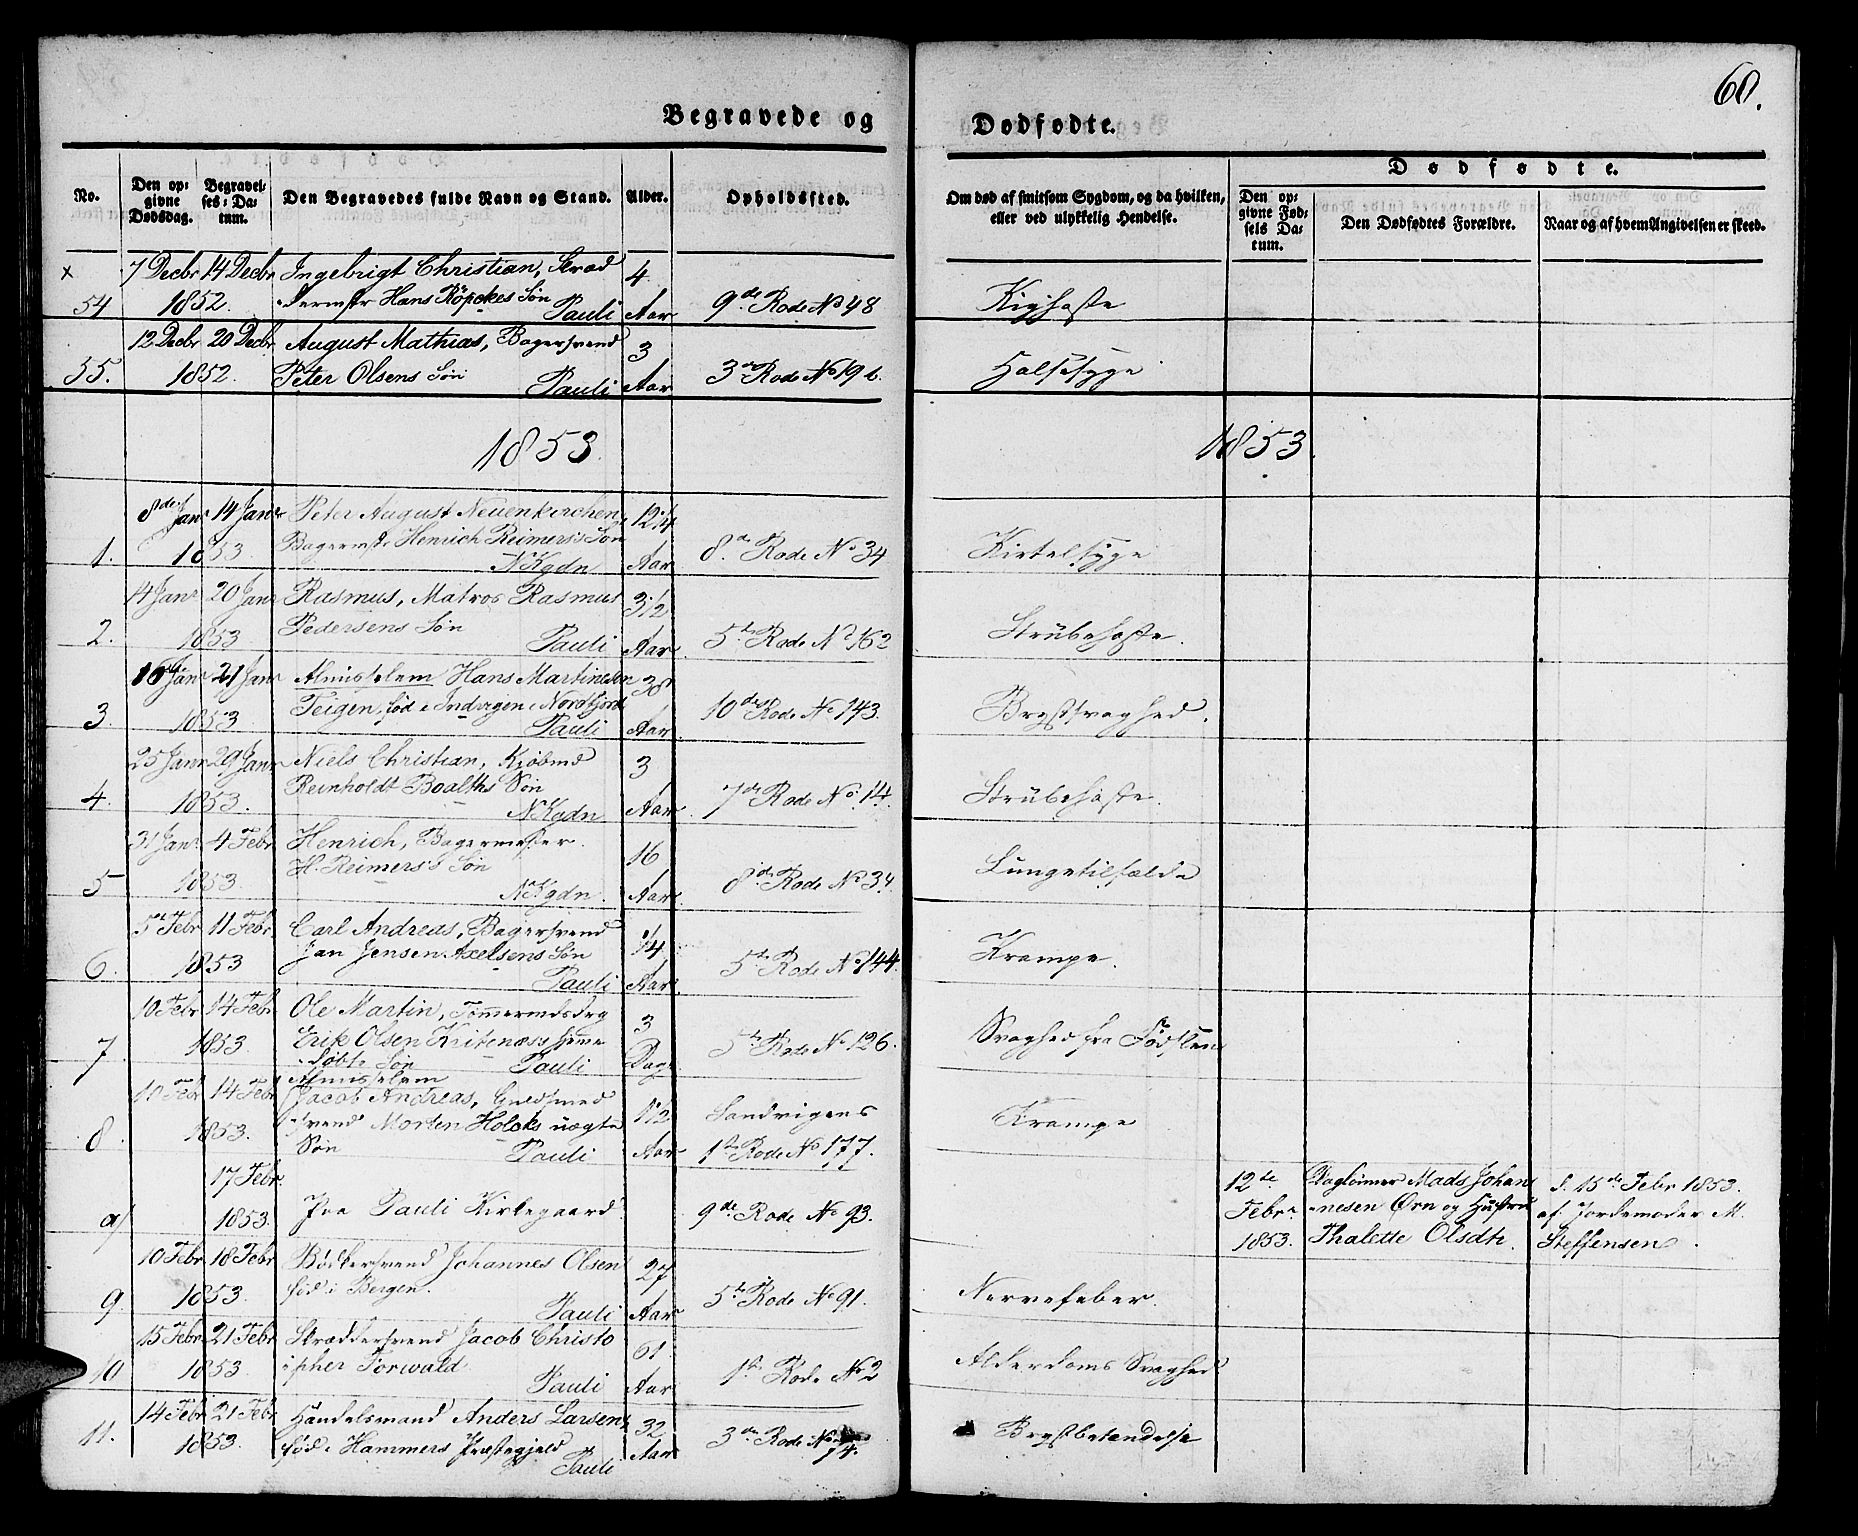 60.
Begravede og
Dødfødte.
No.
Den opgivne Dødsdag.
Begravelses-Datum.
Den Begravedes fulde Navn og Stand.
Alder.
Opholdssted.
Om død af smitsom Sygdom, og da hvilken,
eller ved ulykkelig Hendelse.
Dødfødte.
Den opgivne Fødsels Datum.
Den Dødfødtes Forældre.
Naar og af hvem Angivelsen er skeed.
x 7 Decbr 14 Decbr Ingebrigt Christian, Skræd 4
54 1852. dermstr Hans Röpckes Søn Pauli Aar 9de Rode No 48 Kighoste
12 Decbr 20 Decbr August Mathias, Bagersvend 3
55. 1852. Peter Olsens Søn Pauli Aar 3de Rode No 19 Halssyge
1853. 1853.
8de Janr 14 Janr Peter August Neuenkirchen, 12 1/4
Bagermstr Henrich Reimers's Søn
1. 1853. NKgdn Aar 8de Rode No 34 Kirtelsyge
14 Janr 20 Janr Rasmus, Matros Rasmus 3 1/2
2. 1853 Pedersens Søn Pauli Aar 5te Rode No 162 Strübehoste.
16 Janr 21 Janr Almisselem Hans Martinesen 38
Teigen, fød i Indvigen i Nordfjord
3. 1853 Pauli Aar 10de Rode No 143. Brystsvaghed.
25 Janr 29 Janr Niels Christian, Kjøbmd 3
Reinholdt Boalths Søn
4. 1853. NKgdn Aar 7de Rode No 14. Strübehoste.
31 Janr 4 Febr Henrich, Bagermester 16
H. Reimers's Søn
5 1853. NKgdn. Aar 8de Rode No 34. Lungetilfælde
5te Febr 11 Febr. Carl Andreas, Bagersvend 1/4
Jan Jensen Axelsens Søn
6. 1853 Pauli Aar. 5te Rode No 144. Krampe.
10 Febr 14 Febr. Ole Martin, Tømmermdsdrg 3
1853. Erik Olsen hjemme
7 døbte Søn Pauli Dage 5te Rode No 126. Svaghed fra Fødslen
Almisselem
10 Febr 14 Febr Jacob Andreas, Guldsmed 1 1/2 Sandvigens
svend Morten Holcks uægte
8. 1853. Søn Pauli Aar 1ste Rode No 177. Krampe
17 Febr. 12te Dagleiner Mads Johan d. 15de Febr 1853.
a/ 1853. Paa Pauli Kirkegaard. 9de Rode No 93. Febr. nesen Ørn og Hustru af Jordemoder M.
1853. Thalette Olsdtr. Steffensen.
10 Febr 18 Febr Bødkersvend Johannes Olsen 27
9 1853. fød i Bergen. Pauli Aar 5te Rode No 91. Nervefeber.
15 Febr 21 Febr. Skræddersvend Jacob Christo 61
10 1853 pher Torwald. Pauli Aar 1ste Rode No 2 Alderdoms Svaghed.
14 Febr 21 Febr Handelsmand Anders Larsen, 32
11. 1853. fød i Hammers Præstegjeld Pauli Aar 3de Rode No 74. Brystbetændelse